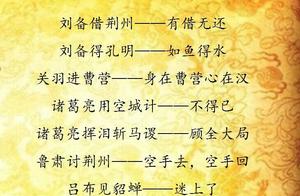 刘备借荆州——有借无还
刘备得孔明——如鱼得水
关羽进曹营——身在曹营心在汉
诸葛亮用空城计——不得已
诸葛亮挥泪斩马谡——顾全大局
鲁肃讨荆州——空手去，空手回
吕布见貂蝉——迷上了